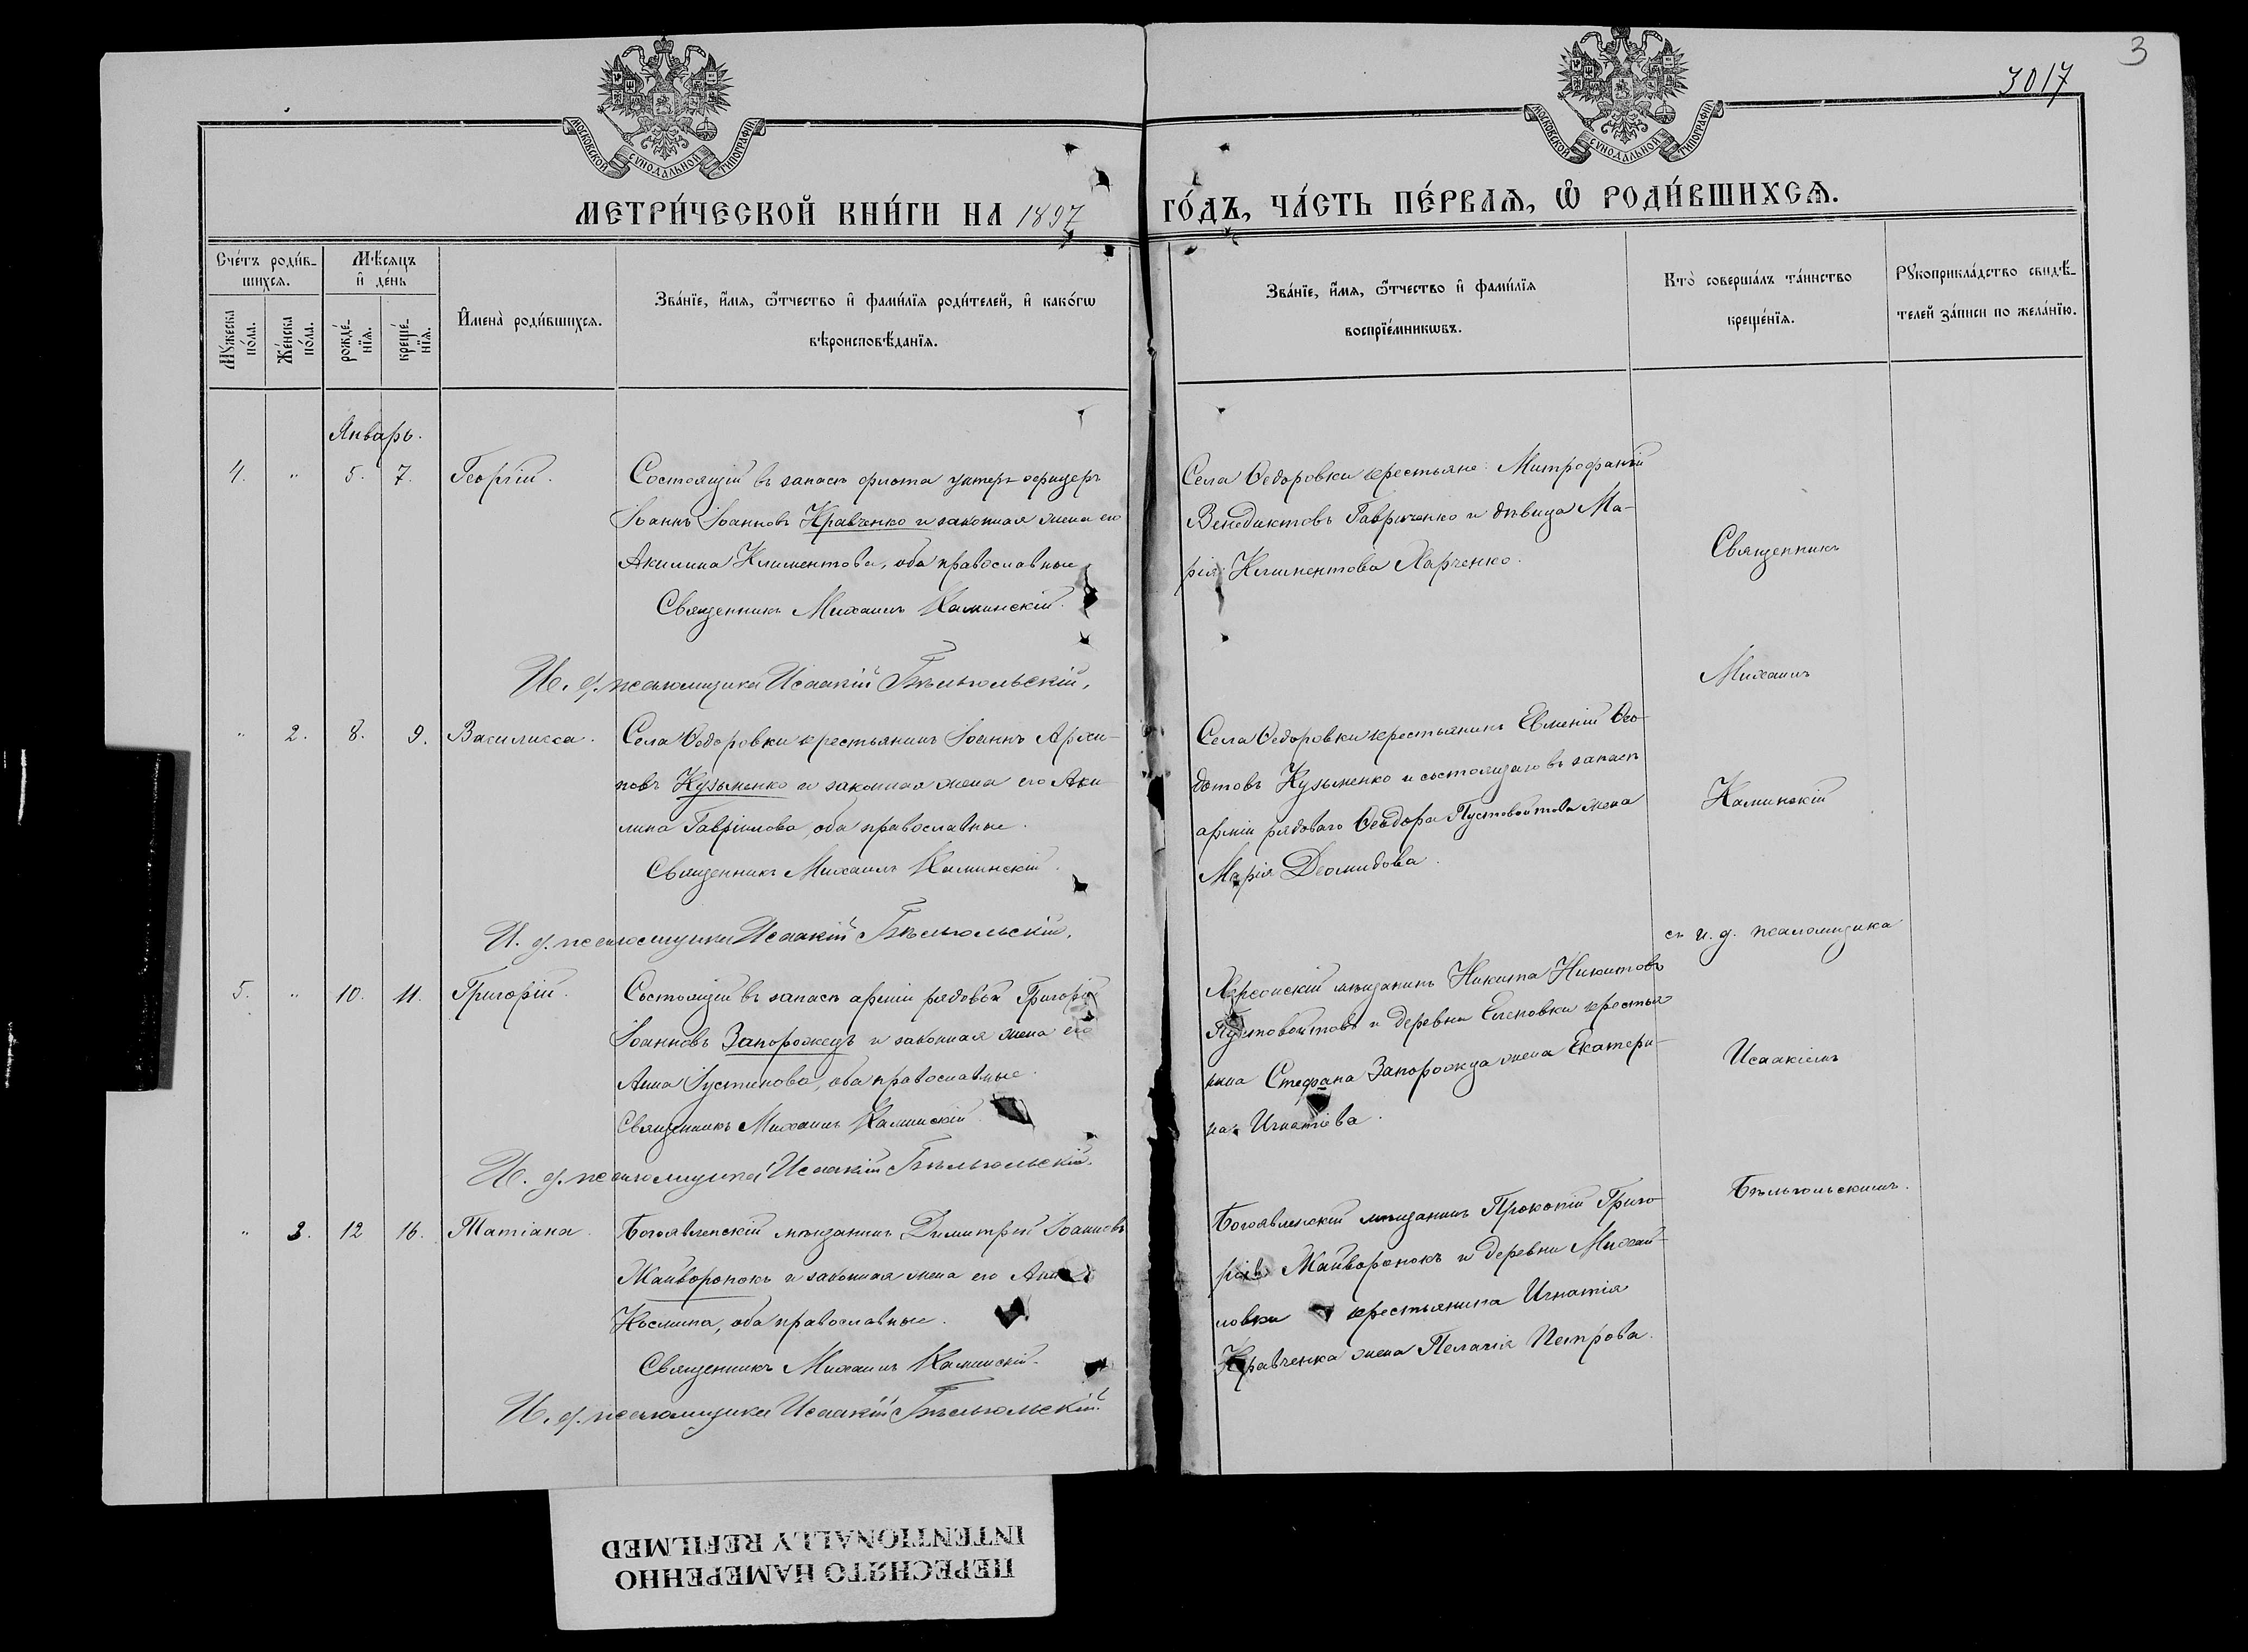 3
3017
МОСКОВСКОЙ СѴНОДАЛЬНОЙ ТИПОГРАФІИ
МОСКОВСКОЙ СѴНОДАЛЬНОЙ ТИПОГРАФІИ
МЕТРИ́ЧЕСКОЙ КНИ́ГИ НА 1897 ГО́ДЪ, ЧА́СТЬ ПЕ́РВАѦ, Ѡ҆ РОДИ́ВШИХСѦ.
Сче́тъ роди́в-
шихсѧ.
Мѣ́сѧцъ
и҆ де́нь
Мꙋ́жеска
по́ла.
Же́нска
по́ла.
рожде́-
нїѧ.
креще́-
нїѧ.
И҆мена̀ роди́вшихсѧ.
Зва́нїе, и҆́мѧ, ѻ҆́тчество и҆ фами́лїѧ роди́телей, и҆ како́гѡ
вѣроисповѣ́данїѧ.
Зва́нїе, и҆́мѧ, ѻ҆́тчество и҆ фами́лїѧ
воспрїе́мникѡвъ.
Кто̀ соверша́лъ та́инство
креще́нїѧ.
Рꙋкоприкла́дство свидѣ́-
телей за́писи по жела́нїю.
Январь.
4. " 5. 7. Георгій.
Состоящій въ запасѣ флота унтеръ-офицеръ
Іоаннъ Іоанновъ Кравченко и законная жена его
Акилина Климентова, оба православные.
Священникъ Михаилъ Каминскій.
И. д. псаломщика Исаакій Бѣльгольскій.
Села Ѳедоровки крестьяне: Митрофаній
Венедиктовъ Гавриченко и дѣвица Ма-
рія Климентова Харченко.
" 2. 8. 9. Василисса.
Села Ѳедоровки крестьянинъ Іоаннъ Архи-
повъ Кузьменко и законная жена его Аки-
лина Гавріилова, оба православные.
Священникъ Михаилъ Каминскій.
И. д. псаломщика Исаакій Бѣльгольскій.
Села Ѳедоровки крестьянинъ Евменій Ѳео-
дотовъ Кузьменко и состоящаго въ запасѣ
арміи рядоваго Ѳеодора Пустовойтова жена
Марія Деомидова.
5. " 10. 11. Григорій.
Состоящій въ запасѣ арміи рядовой Григорій
Іоанновъ Запорожецъ и законная жена его
Анна Іустинова, оба православные.
Священникъ Михаилъ Каминскій
И. д. псаломщика Исаакій Бѣльгольскій.
Херсонскій мѣщанинъ Никита Никитовъ
Пустовойтовъ и деревни Еленовки крестья
нина Стефана Запорожца жена Екатери-
на Игнатіева.
" 3. 12 16. Татіана.
Богоявленскій мѣщанинъ Димитрій Іоанновъ
Жайворонокъ и законная жена его
Космина, оба православные.
Священникъ Михаилъ Каминскій.
И. д. псаломщика Исаакій Бѣльгольскій.
Богоявленскій мѣщанинъ Прокопій Григо-
рьевъ Жайворонокъ и деревни Михай-
ловки крестьянина Игнатія
Кравченка жена Пелагія Петрова.
Священникъ
Михаилъ
Каминскій
съ и. д. псаломщика
Исаакіемъ
Бѣльгольскимъ.
ПЕРЕСНЯТО НАМЕРЕННО
INTENTIONALLY REFILMED